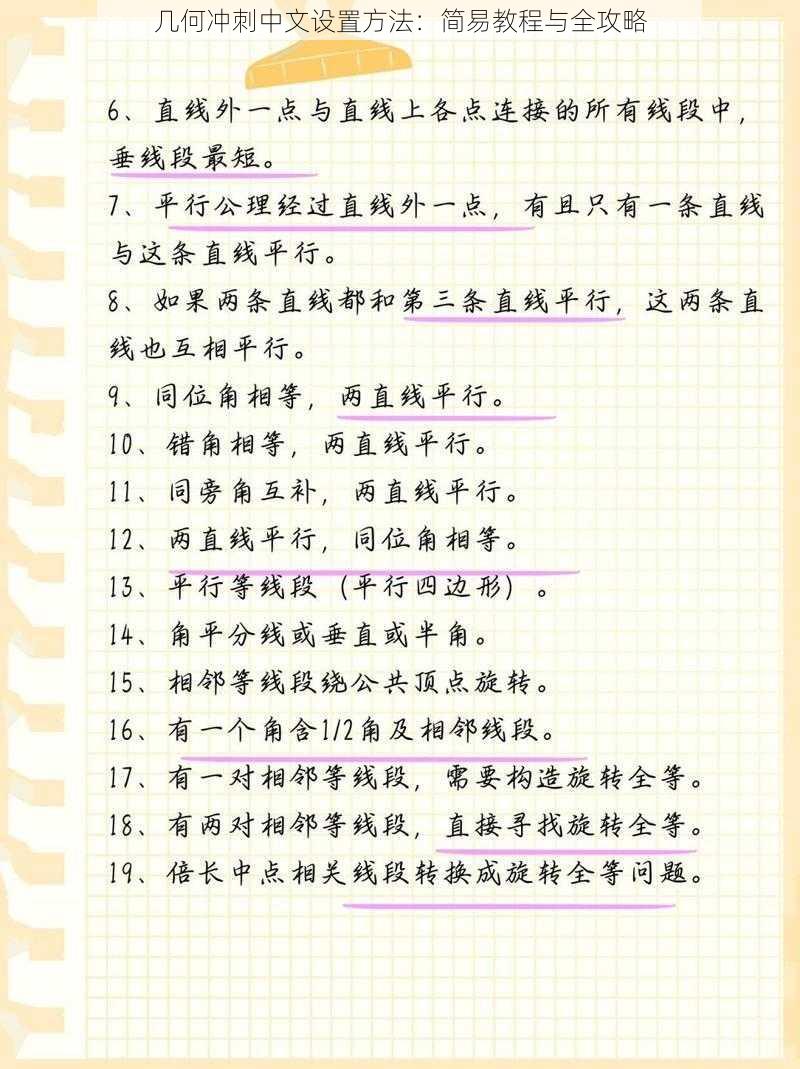 几何冲刺中文设置方法：简易教程与全攻略
6、直线外一点与直线上各点连接的所有线段中，
垂线段最短。
7、平行公理经过直线外一点，有且只有一条直线
与这条直线平行。
8、如果两条直线都和第三条直线平行，这两条直
线也互相平行。
9、同位角相等，两直线平行。
10、错角相等，两直线平行。
11、同旁角互补，两直线平行。
12、两直线平行，同位角相等。
13、平行等线段（平行四边形）。
14、角平分线或垂直或半角。
15、相邻等线段绕公共顶点旋转。
16、有一个角含1/2角及相邻线段。
17、有一对相邻等线段，需要构造旋转全等。
18、有两对相邻等线段，直接寻找旋转全等。
19、倍长中点相关线段转换成旋转全等问题。